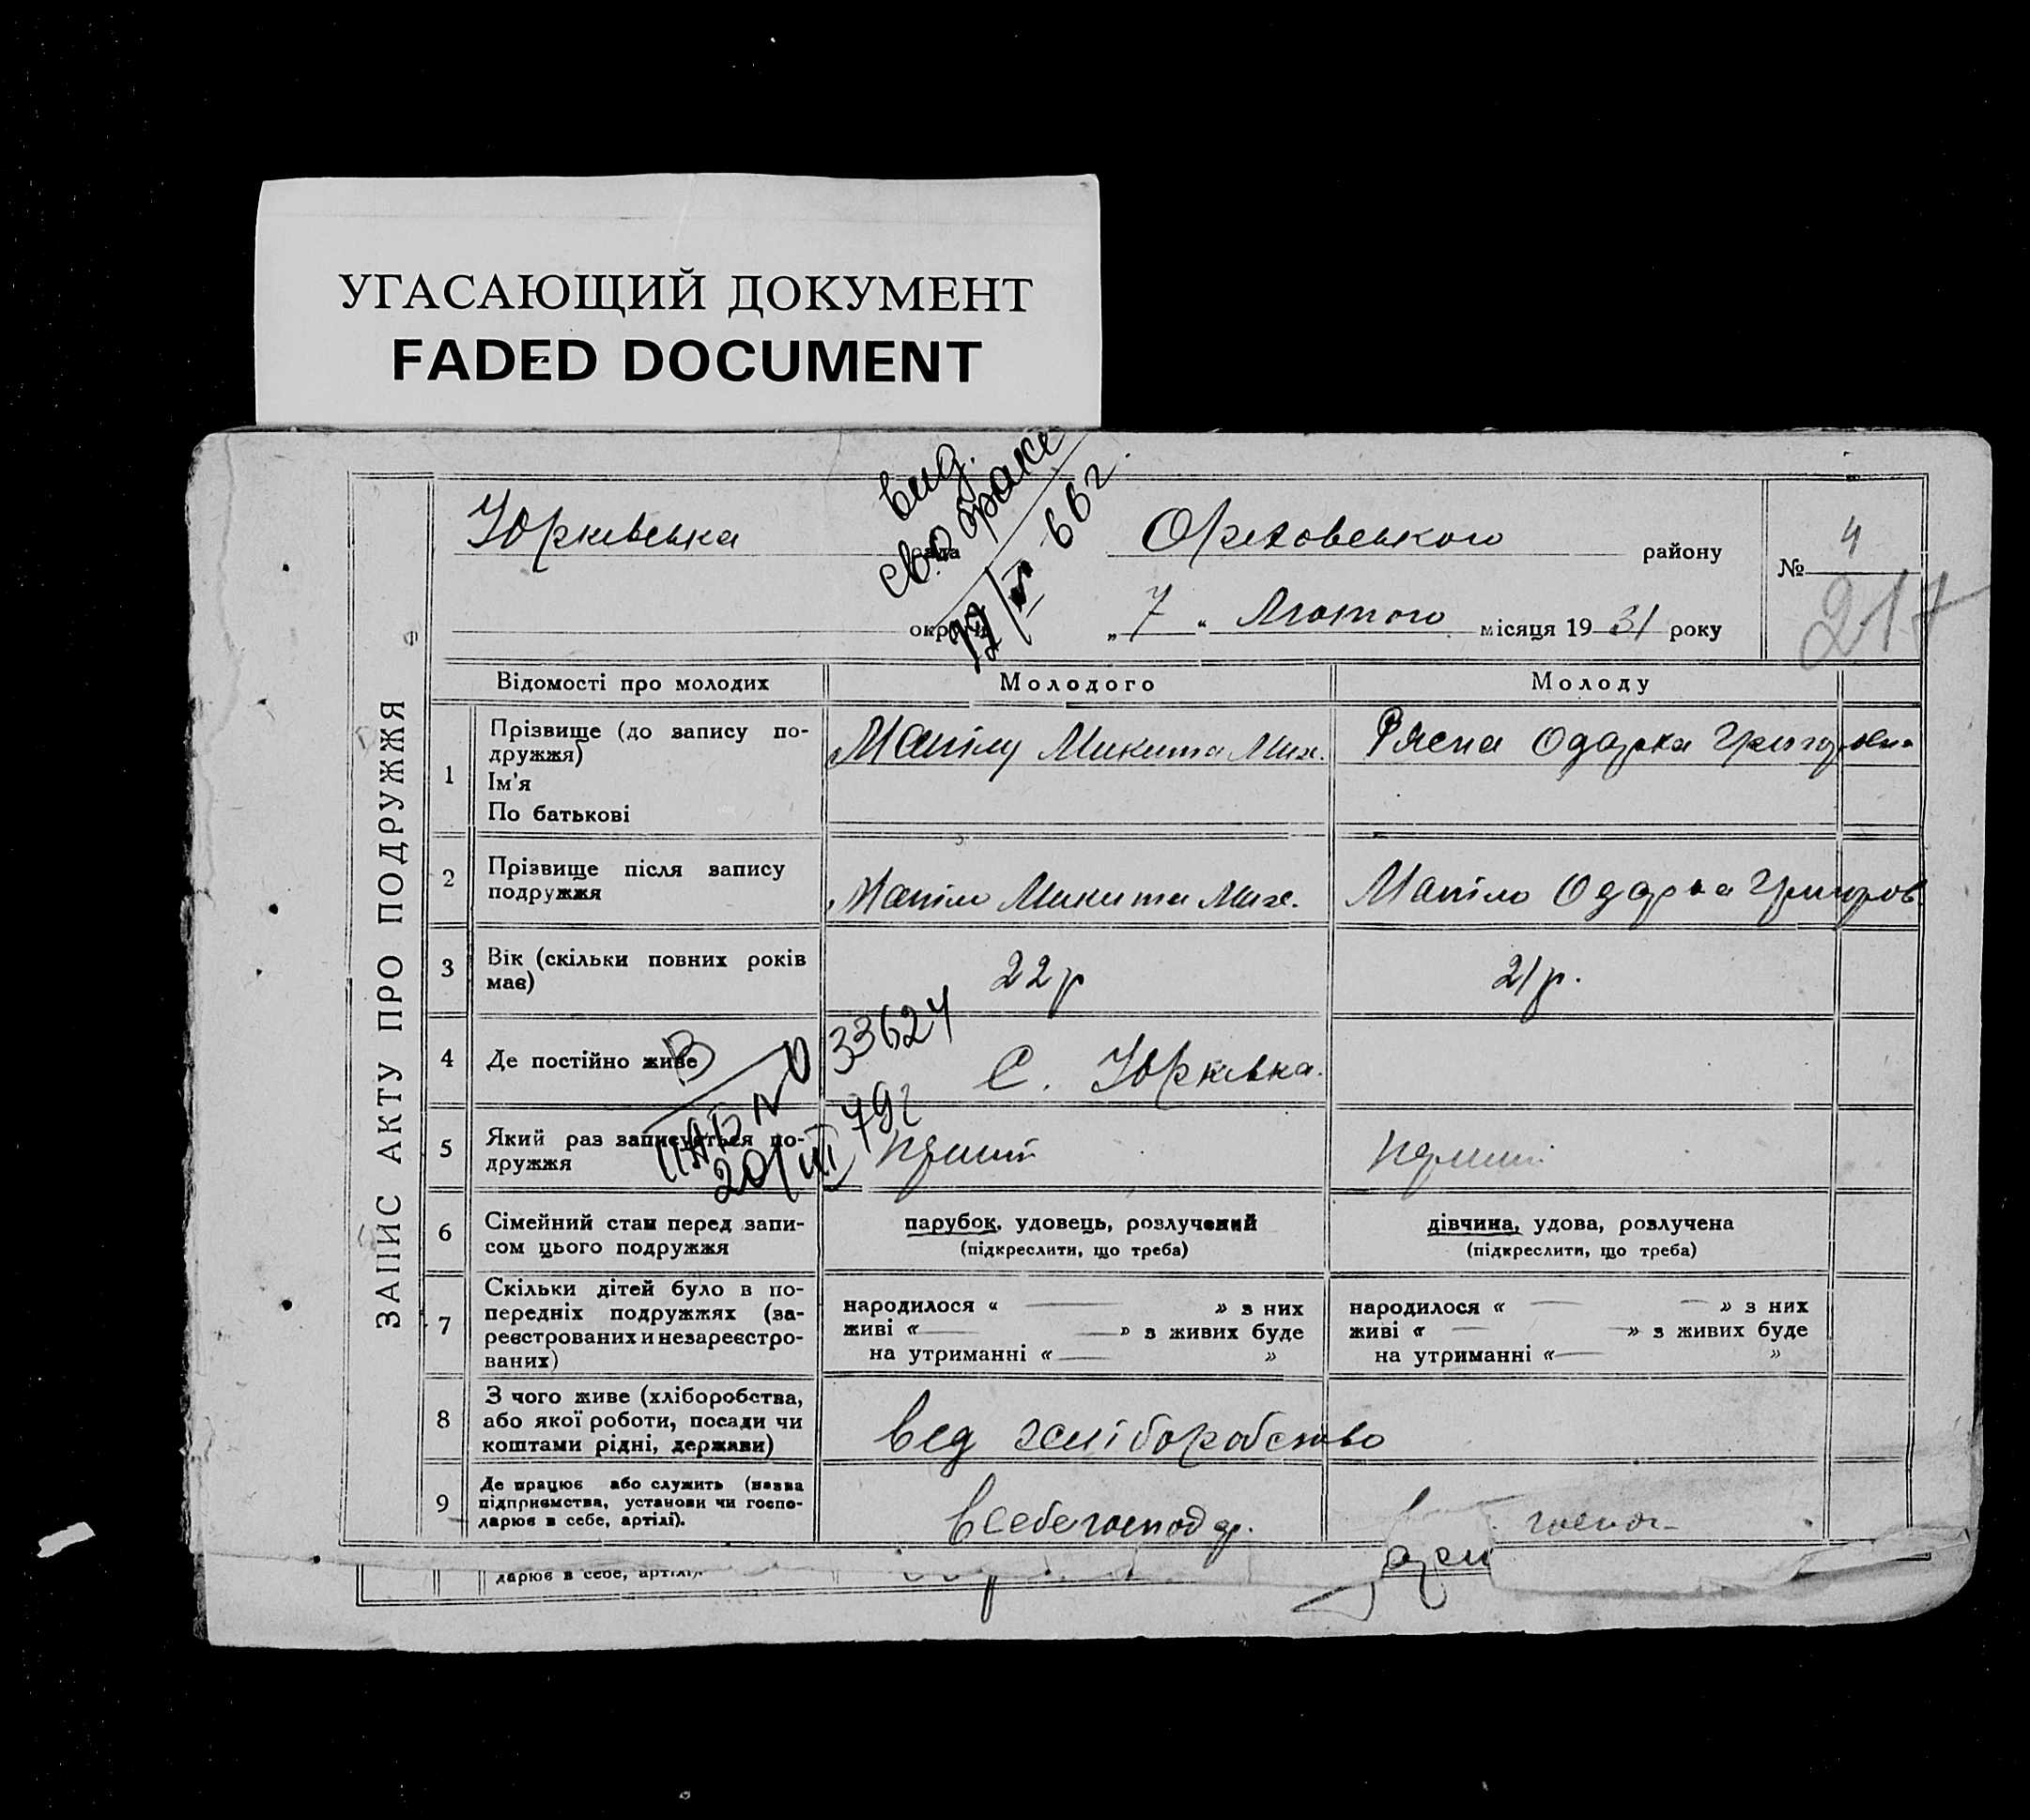 УГАСАЮЩИЙ ДОКУМЕНТ
FADED DOCUMENT
вид.
св. о браке
66 г.
ЗАПИС АКТУ ПРО ПОДРУЖЖЯ
Юрківська рада Оріховського району № 4
217
округи „ 7 “ Лютого місяця 19 31 року
Відомості про молодих Молодого Молоду
1 Прізвище (до запису по-
дружжя)
Ім'я
По батькові
Мапіло Микита Мих. Рясна Одарка Григоровна
2 Прізвище після запису
подружжя
Мапіло Микита Мих. Мапіло Одарка Григоров.
3 Вік (скільки повних років
має)
22 р 21 р.
4 Де постійно живе
С. Юрківка.
33624
20/III 79 г
5 Який раз записується по-
дружжя
перший перший
6 Сімейний стан перед запи-
сом цього подружжя
парубок, удовець, розлучений
(підкреслити, що треба)
дівчина, удова, розлучена
(підкреслити, що треба)
7 Скільки дітей було в по-
передніх подружжях (за-
реєстрованих и незареєстро-
ваних)
народилося « — » з них
живі « — » з живих буде
на утриманні « — »
народилося « — » з них
живі « — » з живих буде
на утриманні « — »
8 З чого живе (хліборобства,
або якої роботи, посади чи
коштами рідні, держави)
від хліборобство
9 Де працює або служить (назва
підприємства, установи чи госпо-
дарює в себе, артілі).
в себе господ.
дарює в себе, артілі).